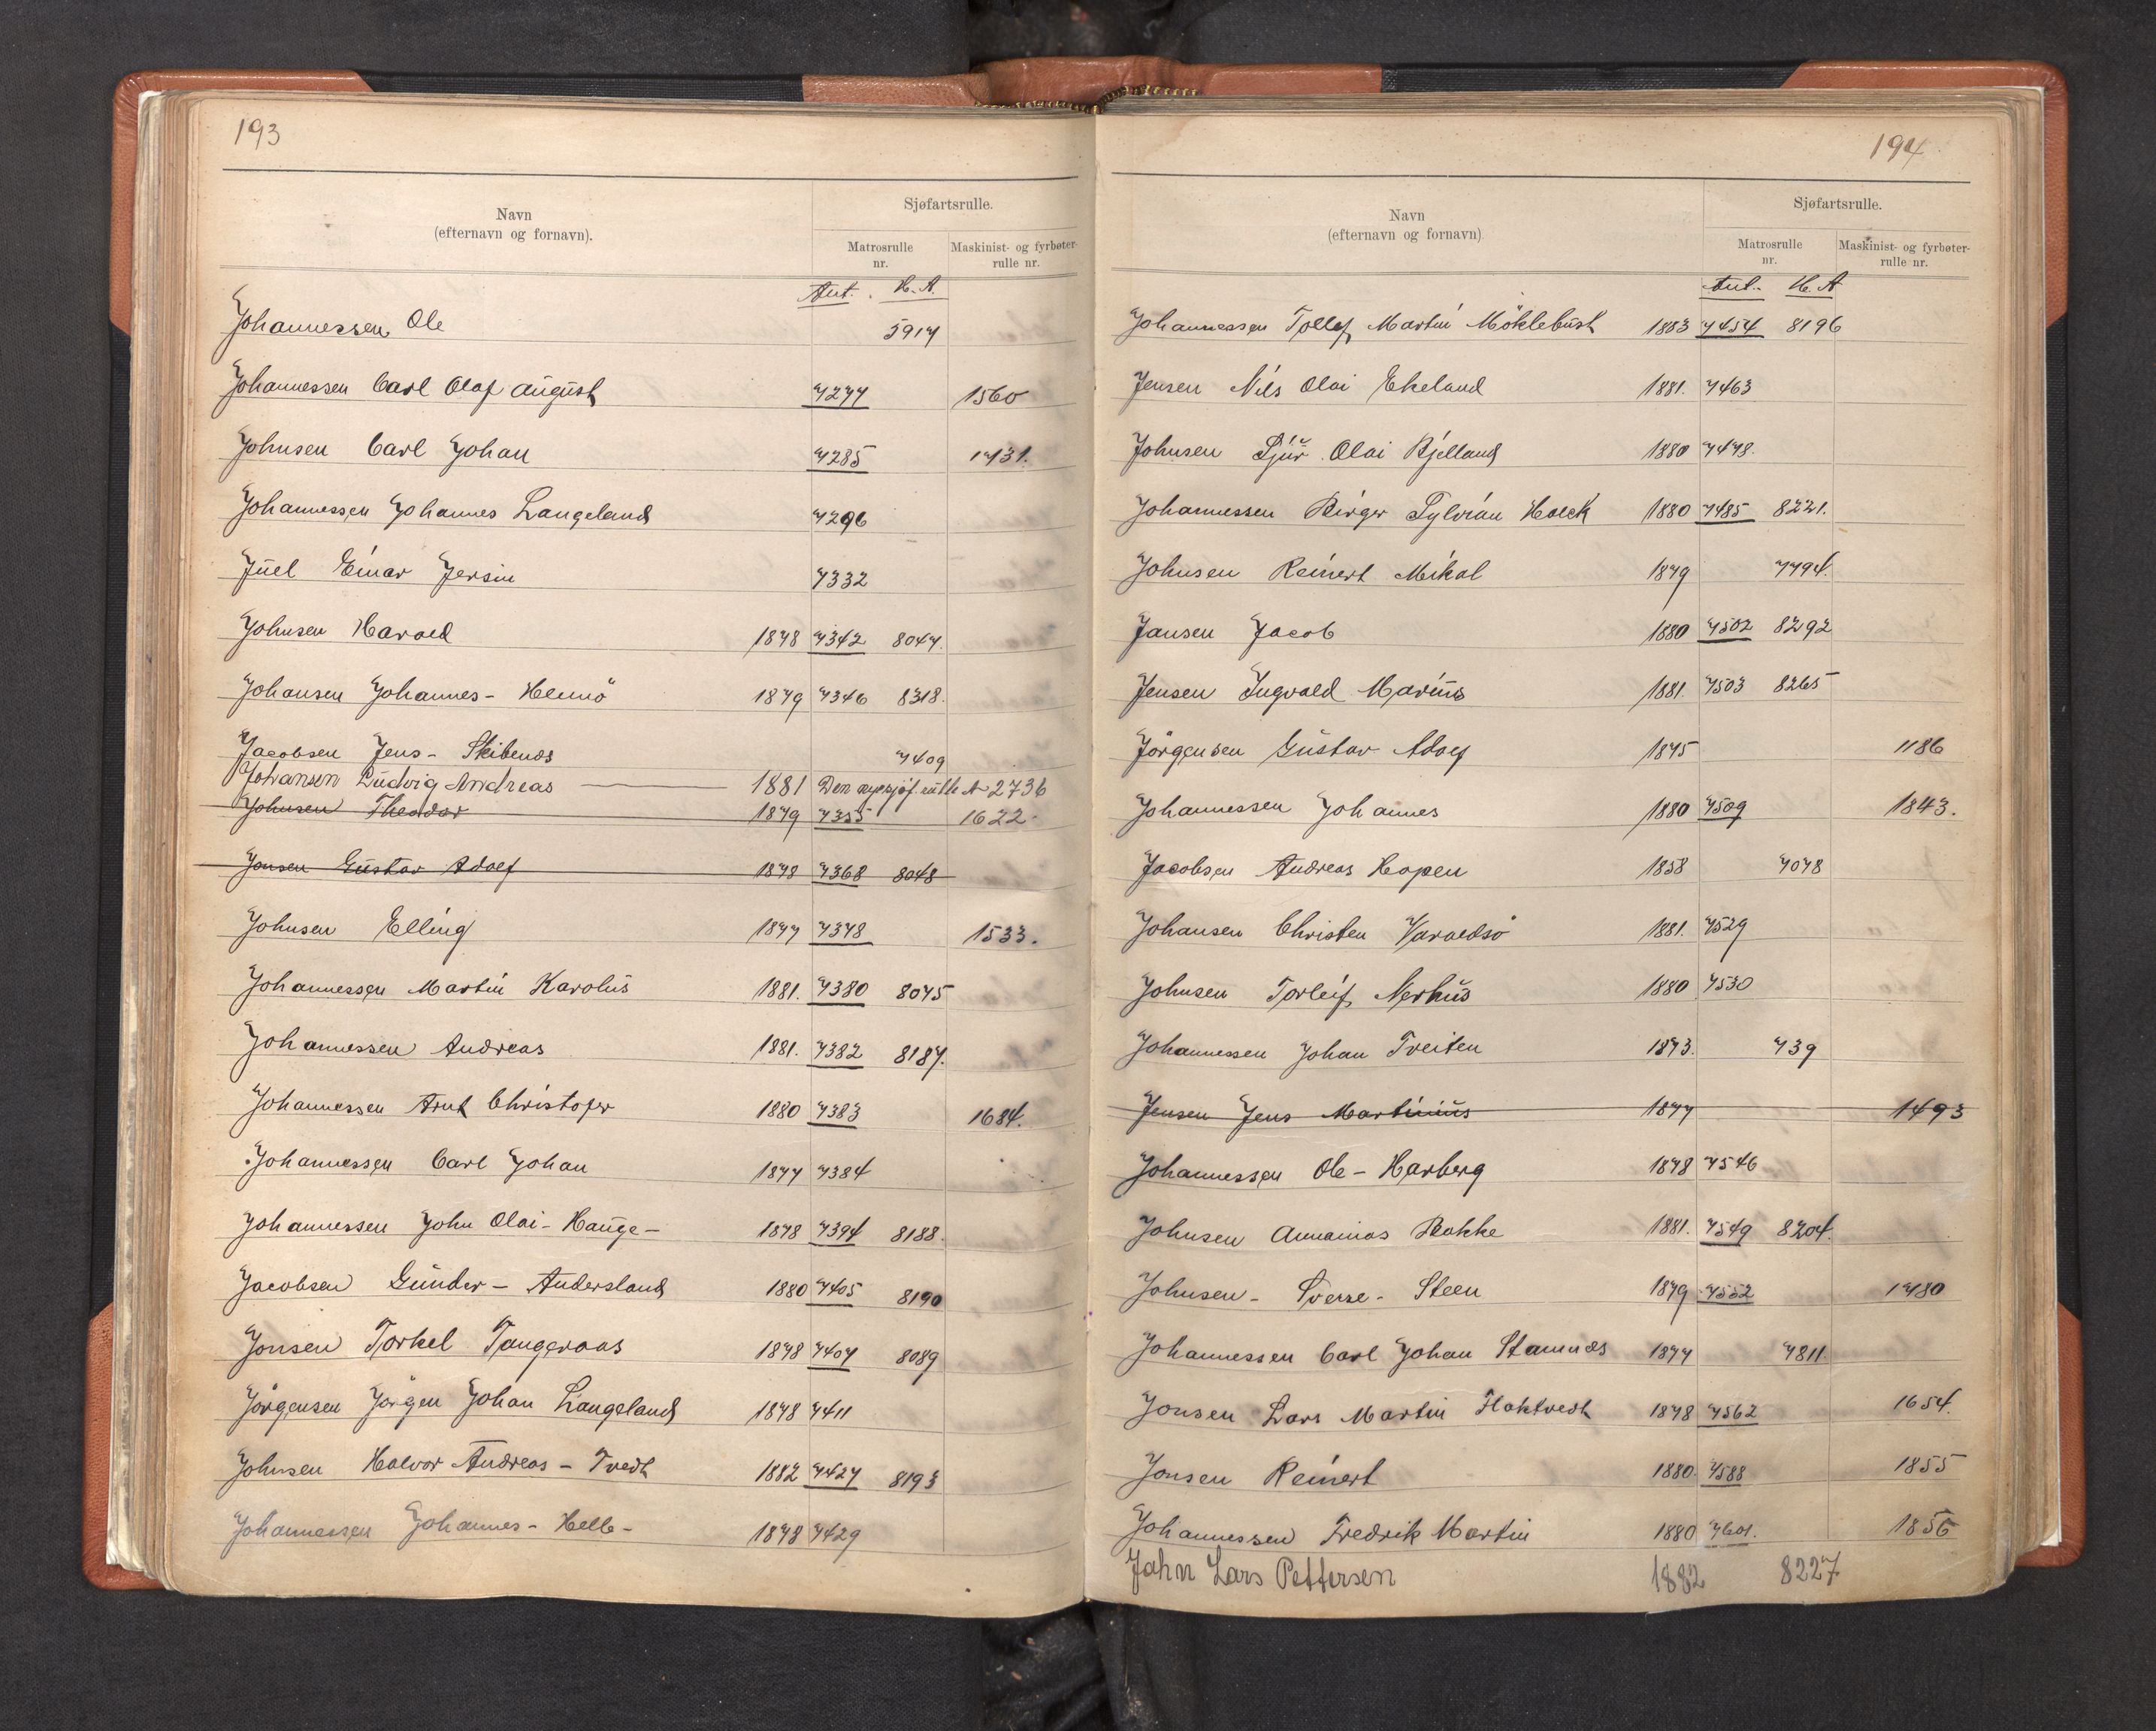 193
Navn
(efternavn og fornavn).
Sjøfartsrulle.
Matrosrulle
nr.
Maskinist- og fyrbøter-
rulle nr.
Ant. H. A.
Johannessen Ole 5917
Johannessen Carl Olaf August 7277 1560
Johnsen Carl Johan 7285 1731.
Johannessen Johannes Langeland 7296
Juel Einar Jersin 7332
Johnsen Harald 1878 7342 8047.
Johansen Johannes - Hennö 1879 7346 8318.
Jacobsen Jens - Skibenes 7409
Johansen Ludvig Andreas 1881 Den nye sjøf. rulle No 2736
Johnsen Theodor 1879 7355 1622
Jonsen Gustav Adolf 1878 7368 8048
Johnsen Elling 1877 7378 1533.
Johannessen Martin Karolus 1881. 7380 8075
Johannessen Andreas 1881. 7382 8187.
Johannessen Arnt Christofer 1880 7383 1684.
Johannessen Carl Johan 1877 7384
Johannessen John Olai - Hauge - 1878 7394 8188.
Jacobsen Gunder - Andersland 1880 7405 8190
Jonsen Torkel Tangeraas 1878 7407 8089
Jörgensen Jörgen Johan Langeland 1878 7411
Johnsen Halvor Andreas - Tvedt 1882 7427 8193
Johannessen Johannes - Helle - 1878 7429
194
Navn
(efternavn og fornavn)
Sjøfartsrulle.
Matrosrulle
nr.
Maskinist- og fyrbøter-
rulle nr.
Ant. H. A
Johannessen Tollef Martin Möklebust 1883 7454 8196
Jensen Nils Olai Ekeland 1881. 7463
Johnsen Sjur Olai Bjelland 1880 7478.
Johannessen Birger Sylvian Holck 1880 7485 8221.
Johnsen Reinert Mikal 1879 7794.
Jansen Jacob 1880 7502 8292
Jensen Ingvald Marius 1881. 7503 8265
Jörgensen Gustav Adolf 1875 1186
Johannessen Johannes 1880 7509 1843.
Jacobsen Andreas Hopen 1858 7078
Johansen Christen Varaldsö 1881. 7529
Johnsen Torleif Nerhus 1880 7530
Johannessen Johan Tveiten 1873. 739
Jensen Jens Martinius 1877 1493
Johannessen Ole - Harberg 1878 7546
Johnsen Annanias Bakke 1881. 7549 8204.
Johnsen - Sverre - Steen 1879 7552 1780
Johannessen Carl Johan Stamnes 1877 7811.
Jonsen Lars Martin Flaktvedt 1878 7562 1654.
Jonsen Reinert 1880. 7588 1855
Johannessen Fredrik Martin 1880 7601. 1856
Jahn Lars Pettersen 1882 8227